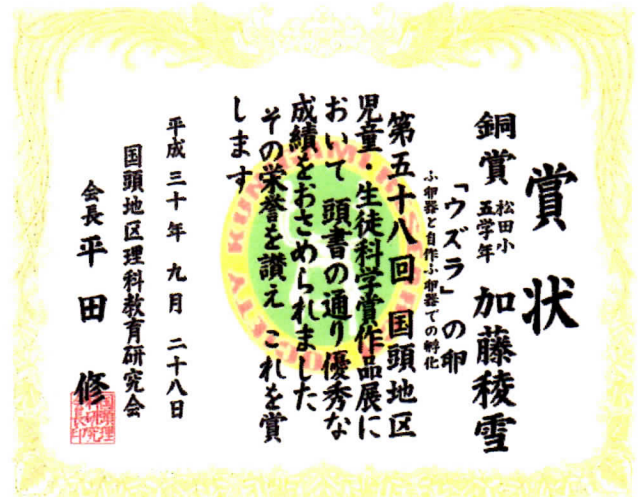 賞状
銅賞 松田小 五学年 加藤稜雪
「ウズラ」の卵
ふ卵器と自作ふ卵器での孵化
第五十八回 国頭地区
児童・生徒科学賞作品展に
おいて 頭書の通り優秀な
成績をおさめられました
その栄誉を讃え これを賞
します
平成三十年 九月 二十八日
国頭地区理科教育研究会
会長 平田 修